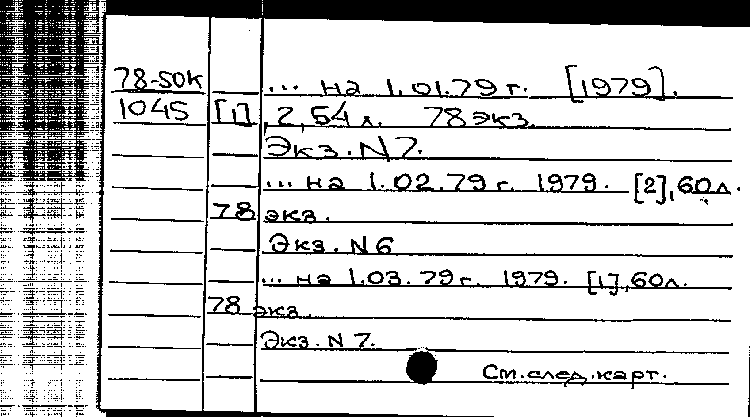 78-50К ... на 1.01.79 г. [1979].
1045 [1], 2, 54 л. 78 экз.
Экз. N 7.
... на 1.02.79 г. 1979. [2], 60 л.
78 экз.
Экз. N 6
... на 1.03.79 г. 1979. [1], 60 л.
78 экз.
Экз. N 7.
См. след. карт.